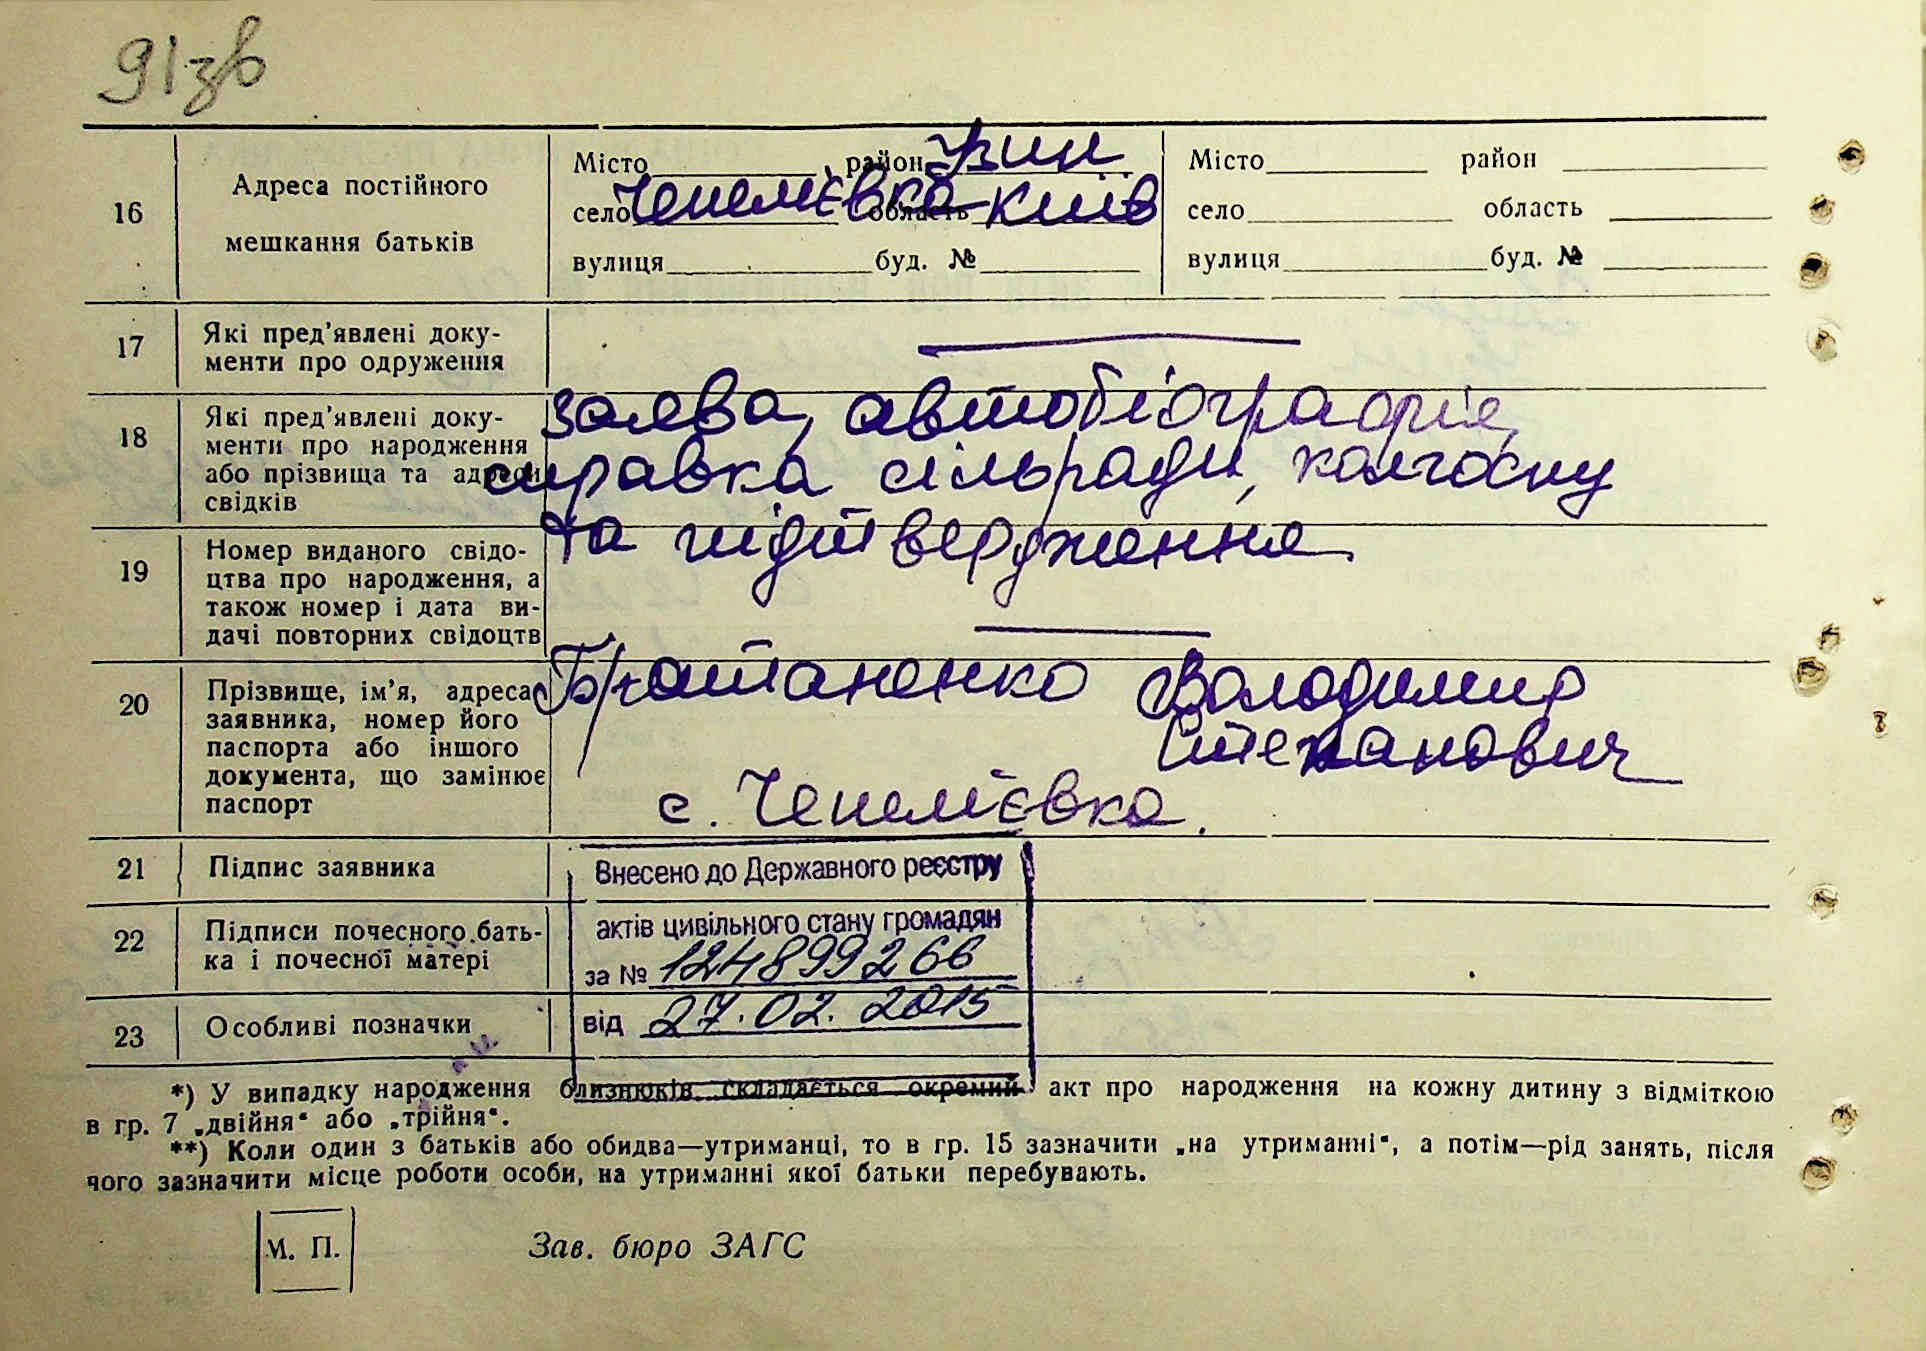 91зв
16 Адреса постійного мешкання батьків
Місто район Узин
село Чепеліївка область Київ
вулиця буд. №
Місто район
село область
вулиця буд. №
17 Які пред’явлені доку-
менти про одруження
18 Які пред’явлені доку-
менти про народження
або прізвища та адреси
свідків
заява, автобіографія,
справка сільради, колгоспу
та підтвердження
19 Номер виданого свідо-
цтва про народження, а
також номер і дата ви-
дачі повторних свідоцтв
20 Прізвище, ім’я, адреса
заявника, номер його
паспорта або іншого
документа, що замінює
паспорт
Братаненко Володимир
Степанович
с. Чепеліївка.
21 Підпис заявника
22 Підписи почесного бать-
ка і почесної матері
23 Особливі позначки
Внесено до Державного реєстру
актів цивільного стану громадян
за № 124899266
від 27.02.2015
*) У випадку народження близнюків складається окремий акт про народження на кожну дитину з відміткою
в гр. 7 „двійня“ або „трійня“.
**) Коли один з батьків або обидва—утриманці, то в гр. 15 зазначити „на утриманні“, а потім—рід занять, після
чого зазначити місце роботи особи, на утриманні якої батьки перебувають.
М. П.
Зав. бюро ЗАГС